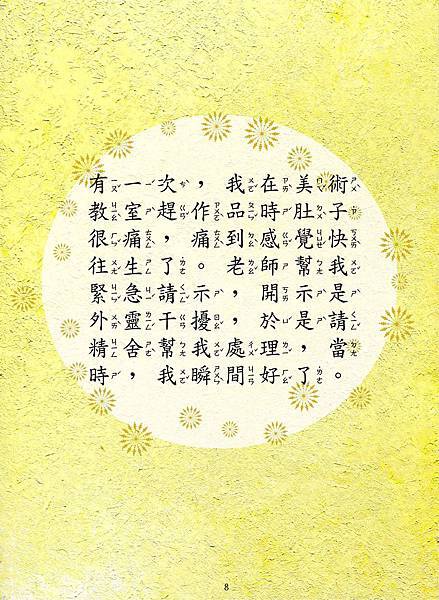 有一次，我在美術
教室趕作品時肚子
很痛，痛到感覺快
往生了。老師幫我
緊急請示，開示是
外靈干擾，於是請
精舍幫我處理，當
時，我瞬間好了。
8